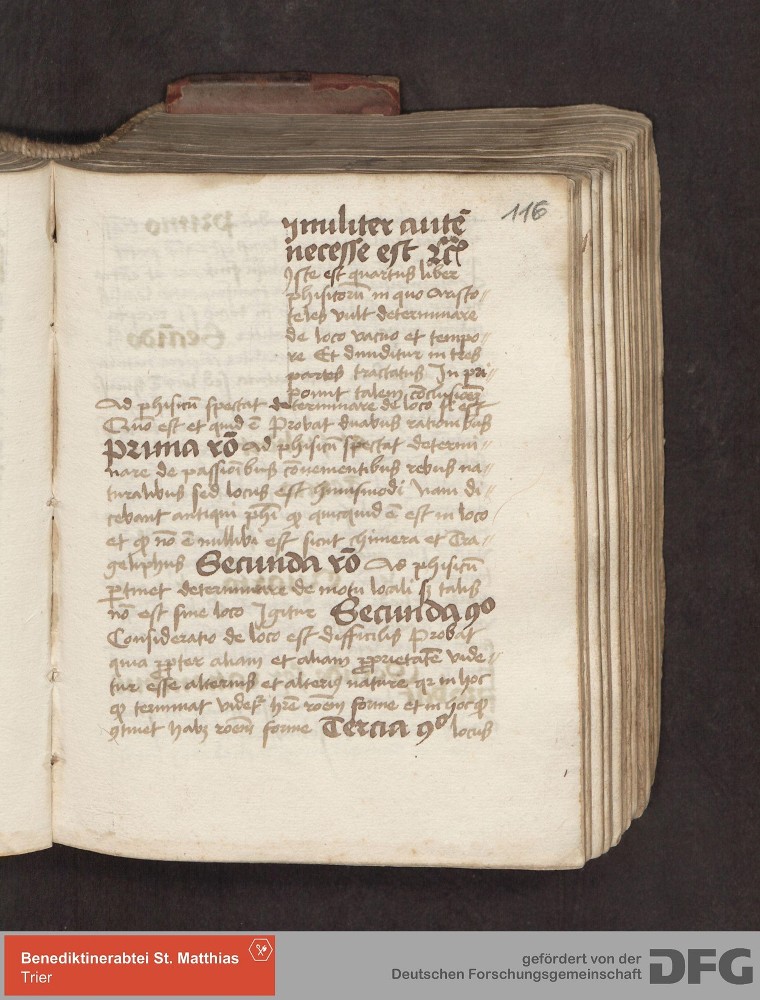 116
imiliter autē
necesse est ꝛcͭ
Iste est quartus liber
phisicorū in quo Aristo⸗
teles vult determinare
de loco vacuo et tempo⸗
re Et diuiditur in tres
partes tractatus In pri
ponit talem conclusionem
Ad phisicū spectat determinare de loco si est
Quo est et quid ē Probat duabus rationibus
Prima rō Ad phisicū spectat determi⸗
nare de passionibus conuenientibus rebus na⸗
turalibus sed locus est huiusmodi nam di⸗
cebant antiqui phī ꝙ quicquid ē est in loco
et ꝙ nō ē nullibi est sicut chimera et Tra⸗
gelaphus Secunda rō Ad phisicū
ꝑtinet determinare de motu locali sꝫ talis
nō est sine loco Igitur Secunda ꝯo
Consideratio de loco est difficilis Probat
quia ꝓpter aliam et aliam ꝓprietatē vide⸗
tur esse alterius et alteriꝰ nature qꝛ in hoc
ꝙ terminat videtꝛ hrē rōem forme et in hoc ꝙ
ꝯtinet habꝫ rōem forme Tercia ꝯo locus
Benediktinerabtei St. Matthias
Trier
gefördert von der
Deutschen Forschungsgemeinschaft DFG